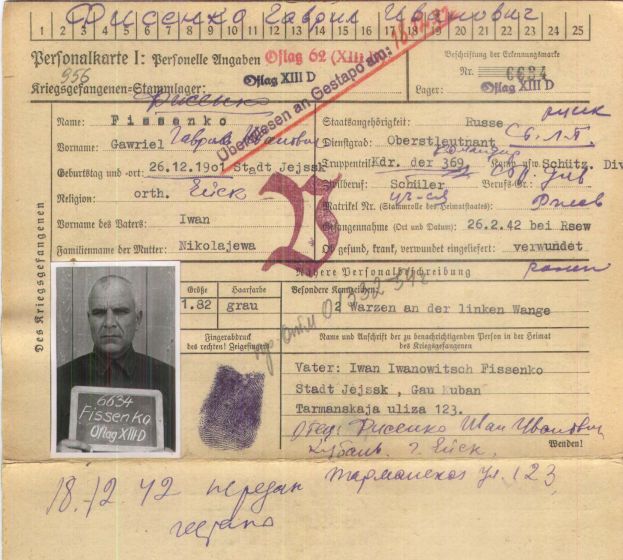 Фисенко Гаврил Иванович
1 2 3 4 5 6 7 8 9 10 11 12 13 14 15 16 17 18 19 20 21 22 23 24 25
Personalkarte I: Personelle Angaben
Oflag 62 (XIII D)
Beschriftung der Erkennungsmarke
956
Nr. 6634
Kriegsgefangenen-Stammlager: Oflag XIII D
Lager: Oflag XIII D
Überwiesen an Gestapo am: 18.12.42
Фисенко
Des Kriegsgefangenen
Name: Fissenko
Staatsangehörigkeit: Russe
Vorname: Gawriel
Гаврил Иванович
Dienstgrad: Oberstleutnant
Geburtstag und -ort: 26.12.1901 Stadt Jejssk
Truppenteil: Kdr. der 369. Schütz. Div
Religion: orth.
Ейск
Zivilberuf: Schüler Berufs-Gr.:
Matrikel Nr. (Stammrolle des Heimatstaates):
Ржев
Vorname des Vaters: Iwan
Gefangennahme (Ort und Datum): 26.2.42 bei Rsew
Familienname der Mutter: Nikolajewa
Ob gesund, krank, verwundet eingeliefert: verwundet
ранен
Nähere Personalbeschreibung
Größe
Haarfarbe
Besondere Kennzeichen:
1.82
grau
2 Warzen an der linken Wange
Fingerabdruck
des rechten! Zeigefingers
Name und Anschrift der zu benachrichtigenden Person in der Heimat
des Kriegsgefangenen
Vater: Iwan Iwanowitsch Fissenko
Stadt Jejssk, Gau Kuban
Tarmanskaja uliza 123.
6634
Fissenko
Oflag XIII D
Фисенко Иван Иванович
Кубань г. Ейск,
Wenden!
Тарманская ул. 123
18.12.42 передан
гестапо